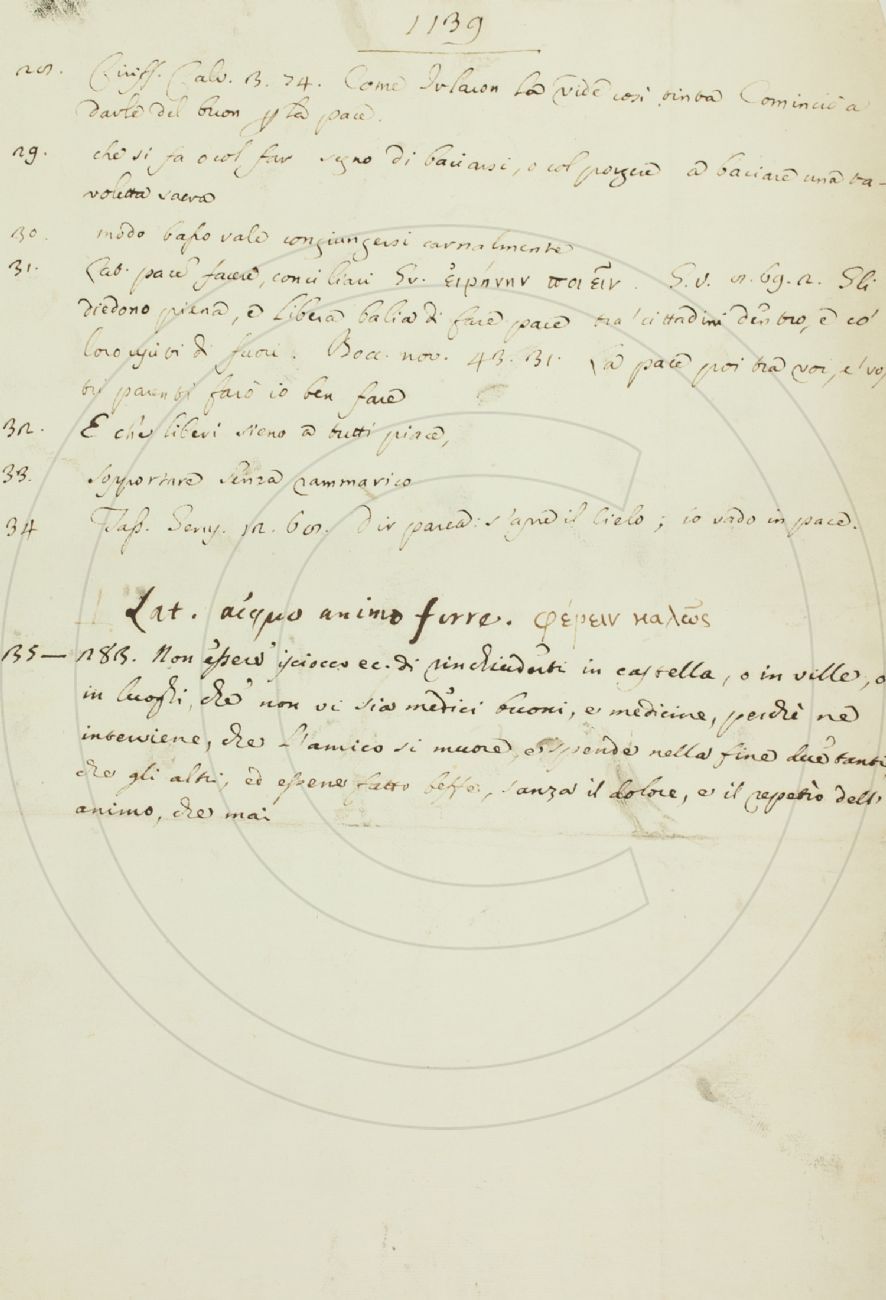 1139
28. Ciriff. Calv. 3. 74. Come Irlacon la vide così vinta Cominciò a
darle del buon p la pace.
29. che si fa o col far segno di baciarsi, o col porgere a baciare una ta-
voletta sacra
30. modo basso vale congiungersi carnalmente
31. Lat. pace facere, conciliari Gr. ἐιρήνην ποιεῖν. G. V. 2. 69. 2. Gli
diedono piena, e libera balia di fare pace tra' cittadini dentro, e co'
loro usciti di fuori. Bocc. nov. 43. 31. la pace poi tra voi, e' vos
tri parenti farò io ben fare
32. E che liberi sieno a tutti piace,
33. sopportare senza rammarico
34 Tass. Geru. 12. 68. Dir parea: s'apre il Cielo; io vado in pace.
Lat. aequo animo ferre. φέρειν καλῶς
35 — 283. Non essere isciocco ec. di rinchiuderti in castella, o in ville, o
in luoghi, che non vi sia medici buoni, e medicine, perchè ne
interviene, che l'amico si muore, e spende nella fine due tanti
che gli altri, ed essene fatto beffe, sanza il dolore, e il repetìo dell'
animo, che mai